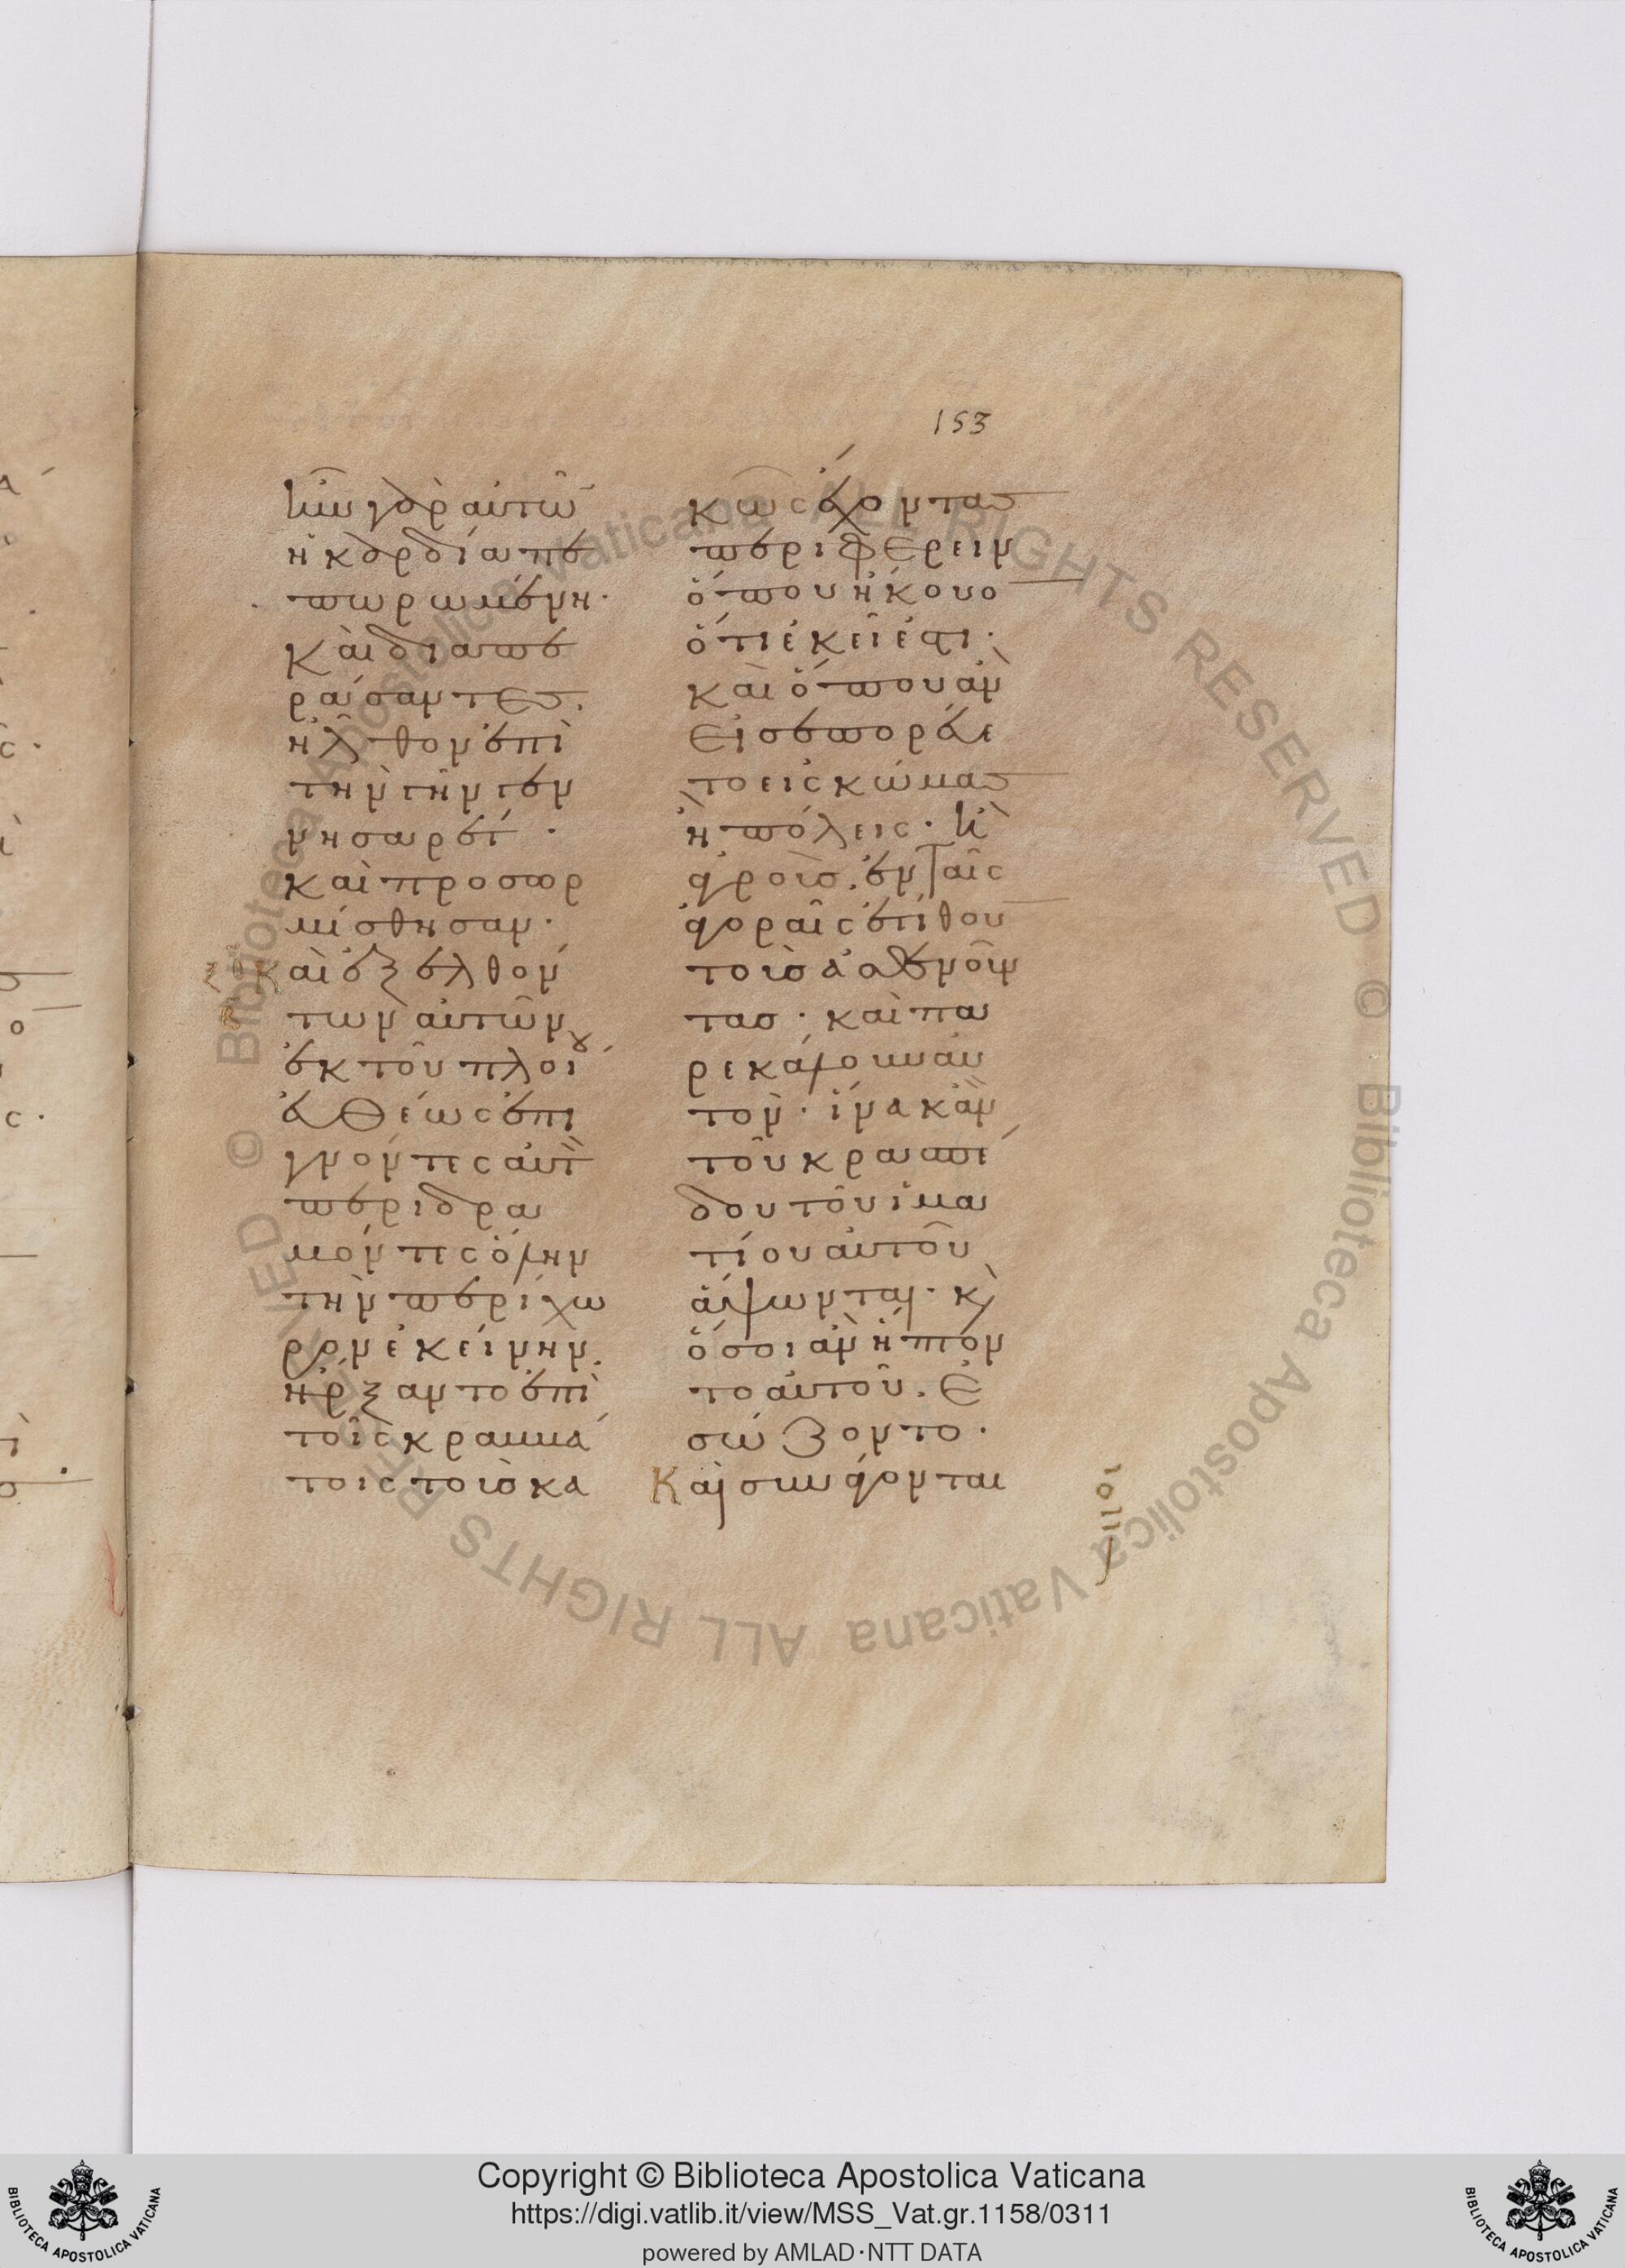 153
ἦν γὰρ αὐτῶ
ἡ καρδία πε
πωρωμένη·
καὶ διαπε
ράσαντες.
ἦλθον ἐπὶ
τὴν γῆν γεν
νησαρέτ·
καὶ προσωρ
μίσθησαν·
Καὶ ἐξελθόν
των αὐτῶν
ἐκ τοῦ πλοίου
εὐθέως ἐπι
γνόντες αὐτὸν
περιδρα
μόντες ὅλην
τὴν περίχω
ρον ἐκείνην.
ἤρξαντο ἐπὶ
τοῖς κραββά
τοις τοὺς κα
κῶς ἔχοντας
περιφέρειν
ὅπου ἤκουον
ὅτι ἐκεῖ ἐστι·
καὶ ὅπου ἂν
εἰσεπορεύε
το εἰς κώμας
ἢ πόλεις· ἢ
ἀγρούς. ἐν ταῖς
ἀγοραῖς ἐτίθουν
τοὺς ἀσθενοῦν
τας· καὶ πα
ρεκάλουν αὐ
τὸν· ἵνα κἂν
τοῦ κρασπέ
δου τοῦ ἱμα
τίου αὐτοῦ
ἅψωνται· κὶ
ὅσοι ἂν ἥπτον
το αὐτοῦ. ἐ
σώζοντο·
Καὶ συνάγονται
© Biblioteca Apostolica Vaticana ALL RIGHTS RESERVED © Biblioteca Apostolica Vaticana ALL RIGHTS RESERVED
Copyright © Biblioteca Apostolica Vaticana
https://digi.vatlib.it/view/MSS_Vat.gr.1158/0311
powered by AMLAD·NTT DATA
BIBLIOTECA APOSTOLICA VATICANA
BIBLIOTECA APOSTOLICA VATICANA